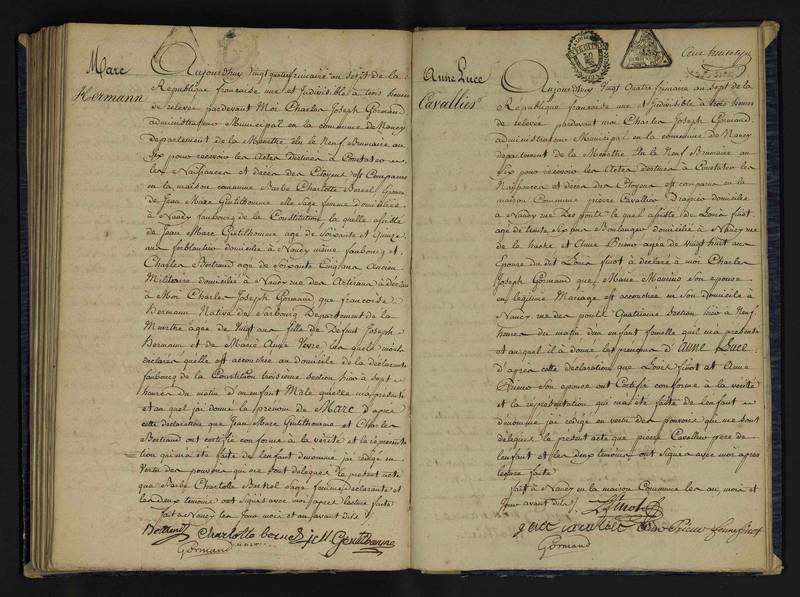 Marc
Hermann
Aujourdhuy vingt quatre frimaire an sept de la
République francoise une et Indivisible à trois heures
de relevé pardevant Moi Charles Joseph Gormand
administrateur Municipal en la commune de Nancy
département de la Meurthe élu le Neuf Brumaire an
Six pour recevoir les Actes destinés à Constater les
les Naissances et décès des Citoyens est Comparue
en la maison commune Barbe Charlotte épouse
de Jean Marc Gutilhomme elle Sage femme domiciliée
à Nancy faubourg de la Constitution la quelle assistée
de Jean Marc Gutilhomme agé de Soixante et quinze
ans ferblantier domicilié à Nancy même faubourg et
Charles Bertrand agé de Soixante Cinq ans Ancien
Militaire domicilié à Nancy rue des Artisans à déclaré
à Moi Charles Joseph Gormand que francoise
Hermann Native de Sarbourg Département de la
Meurthe agée de Vingt ans fille de Defunt Joseph
Hermann et de Marie Anne les quels m'ont
declarés quelle est accouchée au domicile de la déclarante
faubourg de la Constitution troisieme Section hier à sept
heures du matin d'un enfant Male quelle m'a présenté
et au quel j'ai donné le prenom de MARC d'après
cette déclaration que Jean Marc Gutilhomme et Charles
Bertrand ont certifié conforme à la verité et la représenta
tion qui m'a été faite de l'enfant denommé j'ai rédigé en
Vertu des pouvoirs qui me sont délégués le présent acte
que Barbe Charlotte Sage femme déclarante et
les deux temoins ont signés avec moi après lecture faite
fait à Nancy les Jour mois et an avant dits
Charlotte
Gormand
Anne Luce
Cavallier
Aujourdhuy Vingt quatre frimaire an sept de la
République francoise une et Indivisible à trois heures
de relevé pardevant moi Charles Joseph Gormand
administrateur Municipal en la commune de Nancy
département de la Meurthe élu le Neuf Brumaire an
Six pour recevoir les Actes destinés à Constater les
Naissances et décès des Citoyens est comparu en la
maison Commune pierre Cavallier domicilié
à Nancy rue des ponts le quel assisté de Louis finot
agé de trente Six ans Boulanger domicilié à Nancy rue
de la hache et Anne Prieur agée de Vingt huit ans
Epouse du dit Louis finot à déclaré à moi Charles
Joseph Gormand que Marie son epouse
en légitime Mariage est accouchée en son domicile à
Nancy rue des ponts Quatrieme Section hier à Neuf
heures du matin d'un enfant femelle qu'il m'a présenté
et auquel il à donné les prenoms d'ANNE LUCE
d'après cette declaration que Louis finot et Anne
Prieur son epouse ont Certifié conforme à la verité
et la représentation qui m'a été faite de l'enfant
denommé j'ai rédigé en vertu des pouvoirs qui me sont
délégués le présent acte que pierre Cavallier pere de
l'enfant et les deux temoins ont signés avec moi après
lecture faite
fait à Nancy en la maison Commune les an, mois et
Jour avant dits
L finot
Gormand